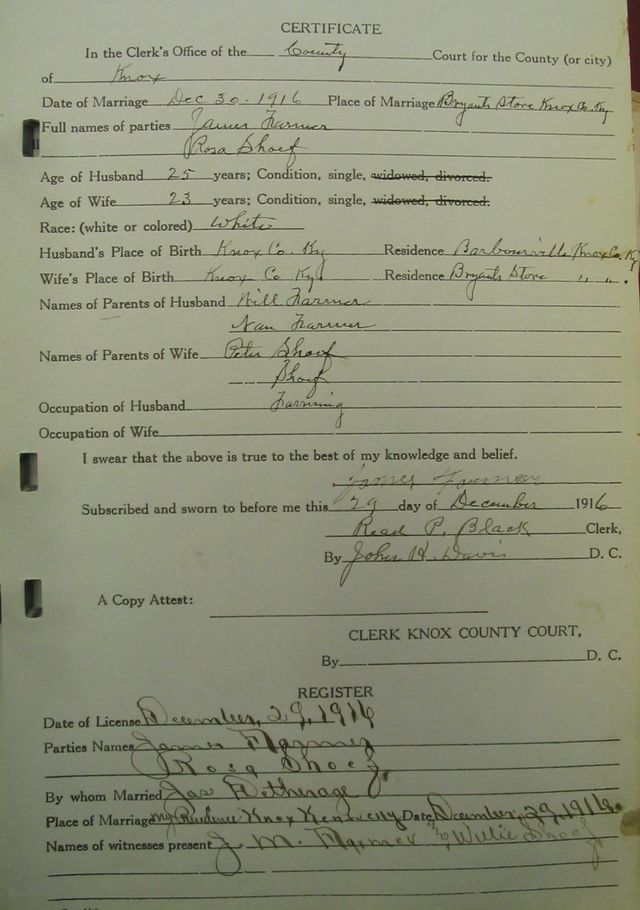 CERTIFICATE
In the Clerk's Office of the County Court for the County (or city)
of Knox
Date of Marriage Dec 30. 1916 Place of Marriage Bryants Store Knox Co. Ky
Full names of parties James Farmer
Rosa Shoef
Age of Husband 25 years; Condition, single, widowed, divorced.
Age of Wife 23 years; Condition, single, widowed, divorced.
Race: (white or colored) White
Husband's Place of Birth Knox Co. Ky Residence Barbourville Knox Co. Ky
Wife's Place of Birth Knox Co Ky. Residence Bryants Store " " .
Names of Parents of Husband Will Farmer
Nan Farmer
Names of Parents of Wife Peter Shoef
Shoef
Occupation of Husband Farming
Occupation of Wife
I swear that the above is true to the best of my knowledge and belief.
James Farmer
Subscribed and sworn to before me this 29 day of December 1916
Read P. Black Clerk,
By John H. Davis D. C.
A Copy Attest:
CLERK KNOX COUNTY COURT,
By D. C.
REGISTER
Date of License December, 29, 1916
Parties Names James Farmer
Rosa Shoef,
By whom Married Jas Hetherage
Place of Marriage my Residence Knox Kentucky Date December, 29, 1916
Names of witnesses present J. M. Farmer & Willie Shoef